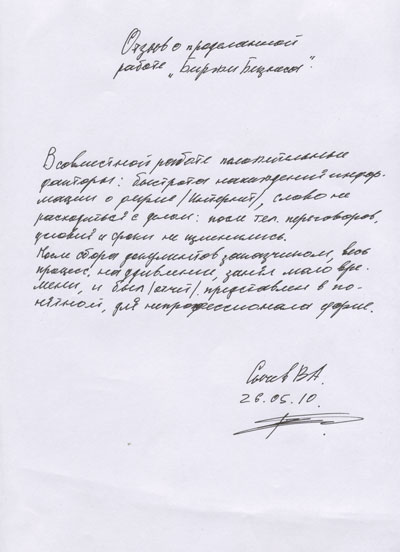 Отзыв о проделанной
работе „Биржи Бизнеса".
В совместной работе положительные
факторы: быстрота нахождения инфор-
мации о фирме /Интернет/, слово не
расходиться с делом: после тел. переговоров,
условия и сроки не изменились.
После сбора документов заказчином, весь
процесс, на удивление, занял мало вре-
мени, и был /отчёт/ представлен в по-
нятной, для непрофессионала форме.
Сычев В.А.
26.05.10.